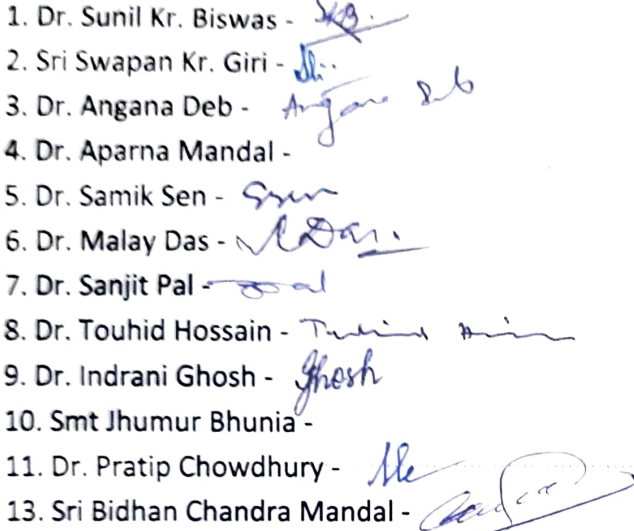 1. Dr. Sunil Kr. Biswas - SKB.
2. Sri Swapan Kr. Giri -
3. Dr. Angana Deb - Angana Deb
4. Dr. Aparna Mandal -
5. Dr. Samik Sen - SSen
6. Dr. Malay Das - MDas.
7. Dr. Sanjit Pal -
8. Dr. Touhid Hossain - Touhid Hossain
9. Dr. Indrani Ghosh - Ghosh
10. Smt Jhumur Bhunia -
11. Dr. Pratip Chowdhury -
13. Sri Bidhan Chandra Mandal -